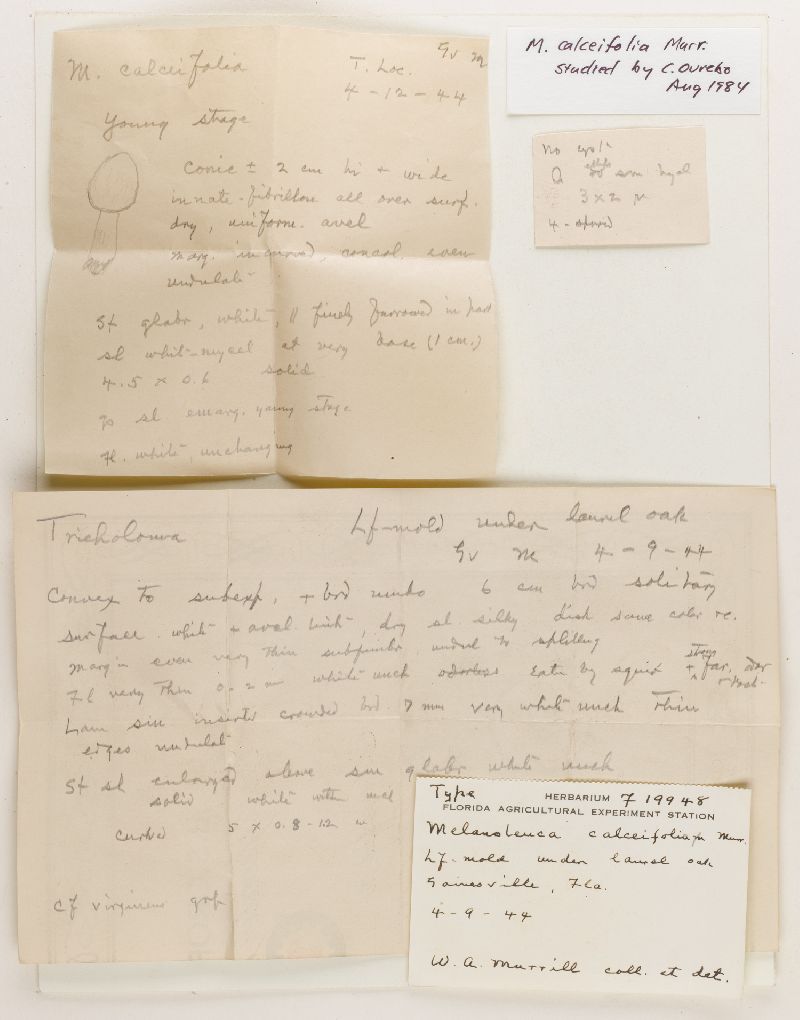 M. calceifolia T. Loc. Gv M
4-12-44
Young stage
conic ± 2 cm hi + wide
innate-fibrillose all over surf.
dry, uniform. avel
marg. incurved, concol. even
undulate
St glabr, white, || finely furrowed in part
sl whit-mycel at very base (1 cm.)
4.5 x 0.6 solid
sl emarg. young stage
Fl. white, unchanging
M. calceifolia Murr.
studied by C. Ovrebo
Aug 1984
no cyst
O sm hyal
3 x 2 µ
4-spored
Tricholoma Lf-mold under laurel oak
Gv M 4-9-44
Convex to subexp, + brd umbo 6 cm brd solitary
surface white + avel tint, dry sl. silky disk same color
margin even very thin undul to splitting
Fl very thin 0.2 cm white unch odorless Eatn by squir + strong far. odor
Lam sin inserted crowded brd 7 mm very white unch thin
edges undulat
St sl enlarged above sm glabr white unch
solid white within
curved 5 x 0.8-1.2
cf virginens grp
Type HERBARIUM F 19948
FLORIDA AGRICULTURAL EXPERIMENT STATION
Melanoleuca calceifolia Murr.
Lf-mold under laurel oak
Gainesville, Fla.
4-9-44
W. A. Murrill coll. et det.